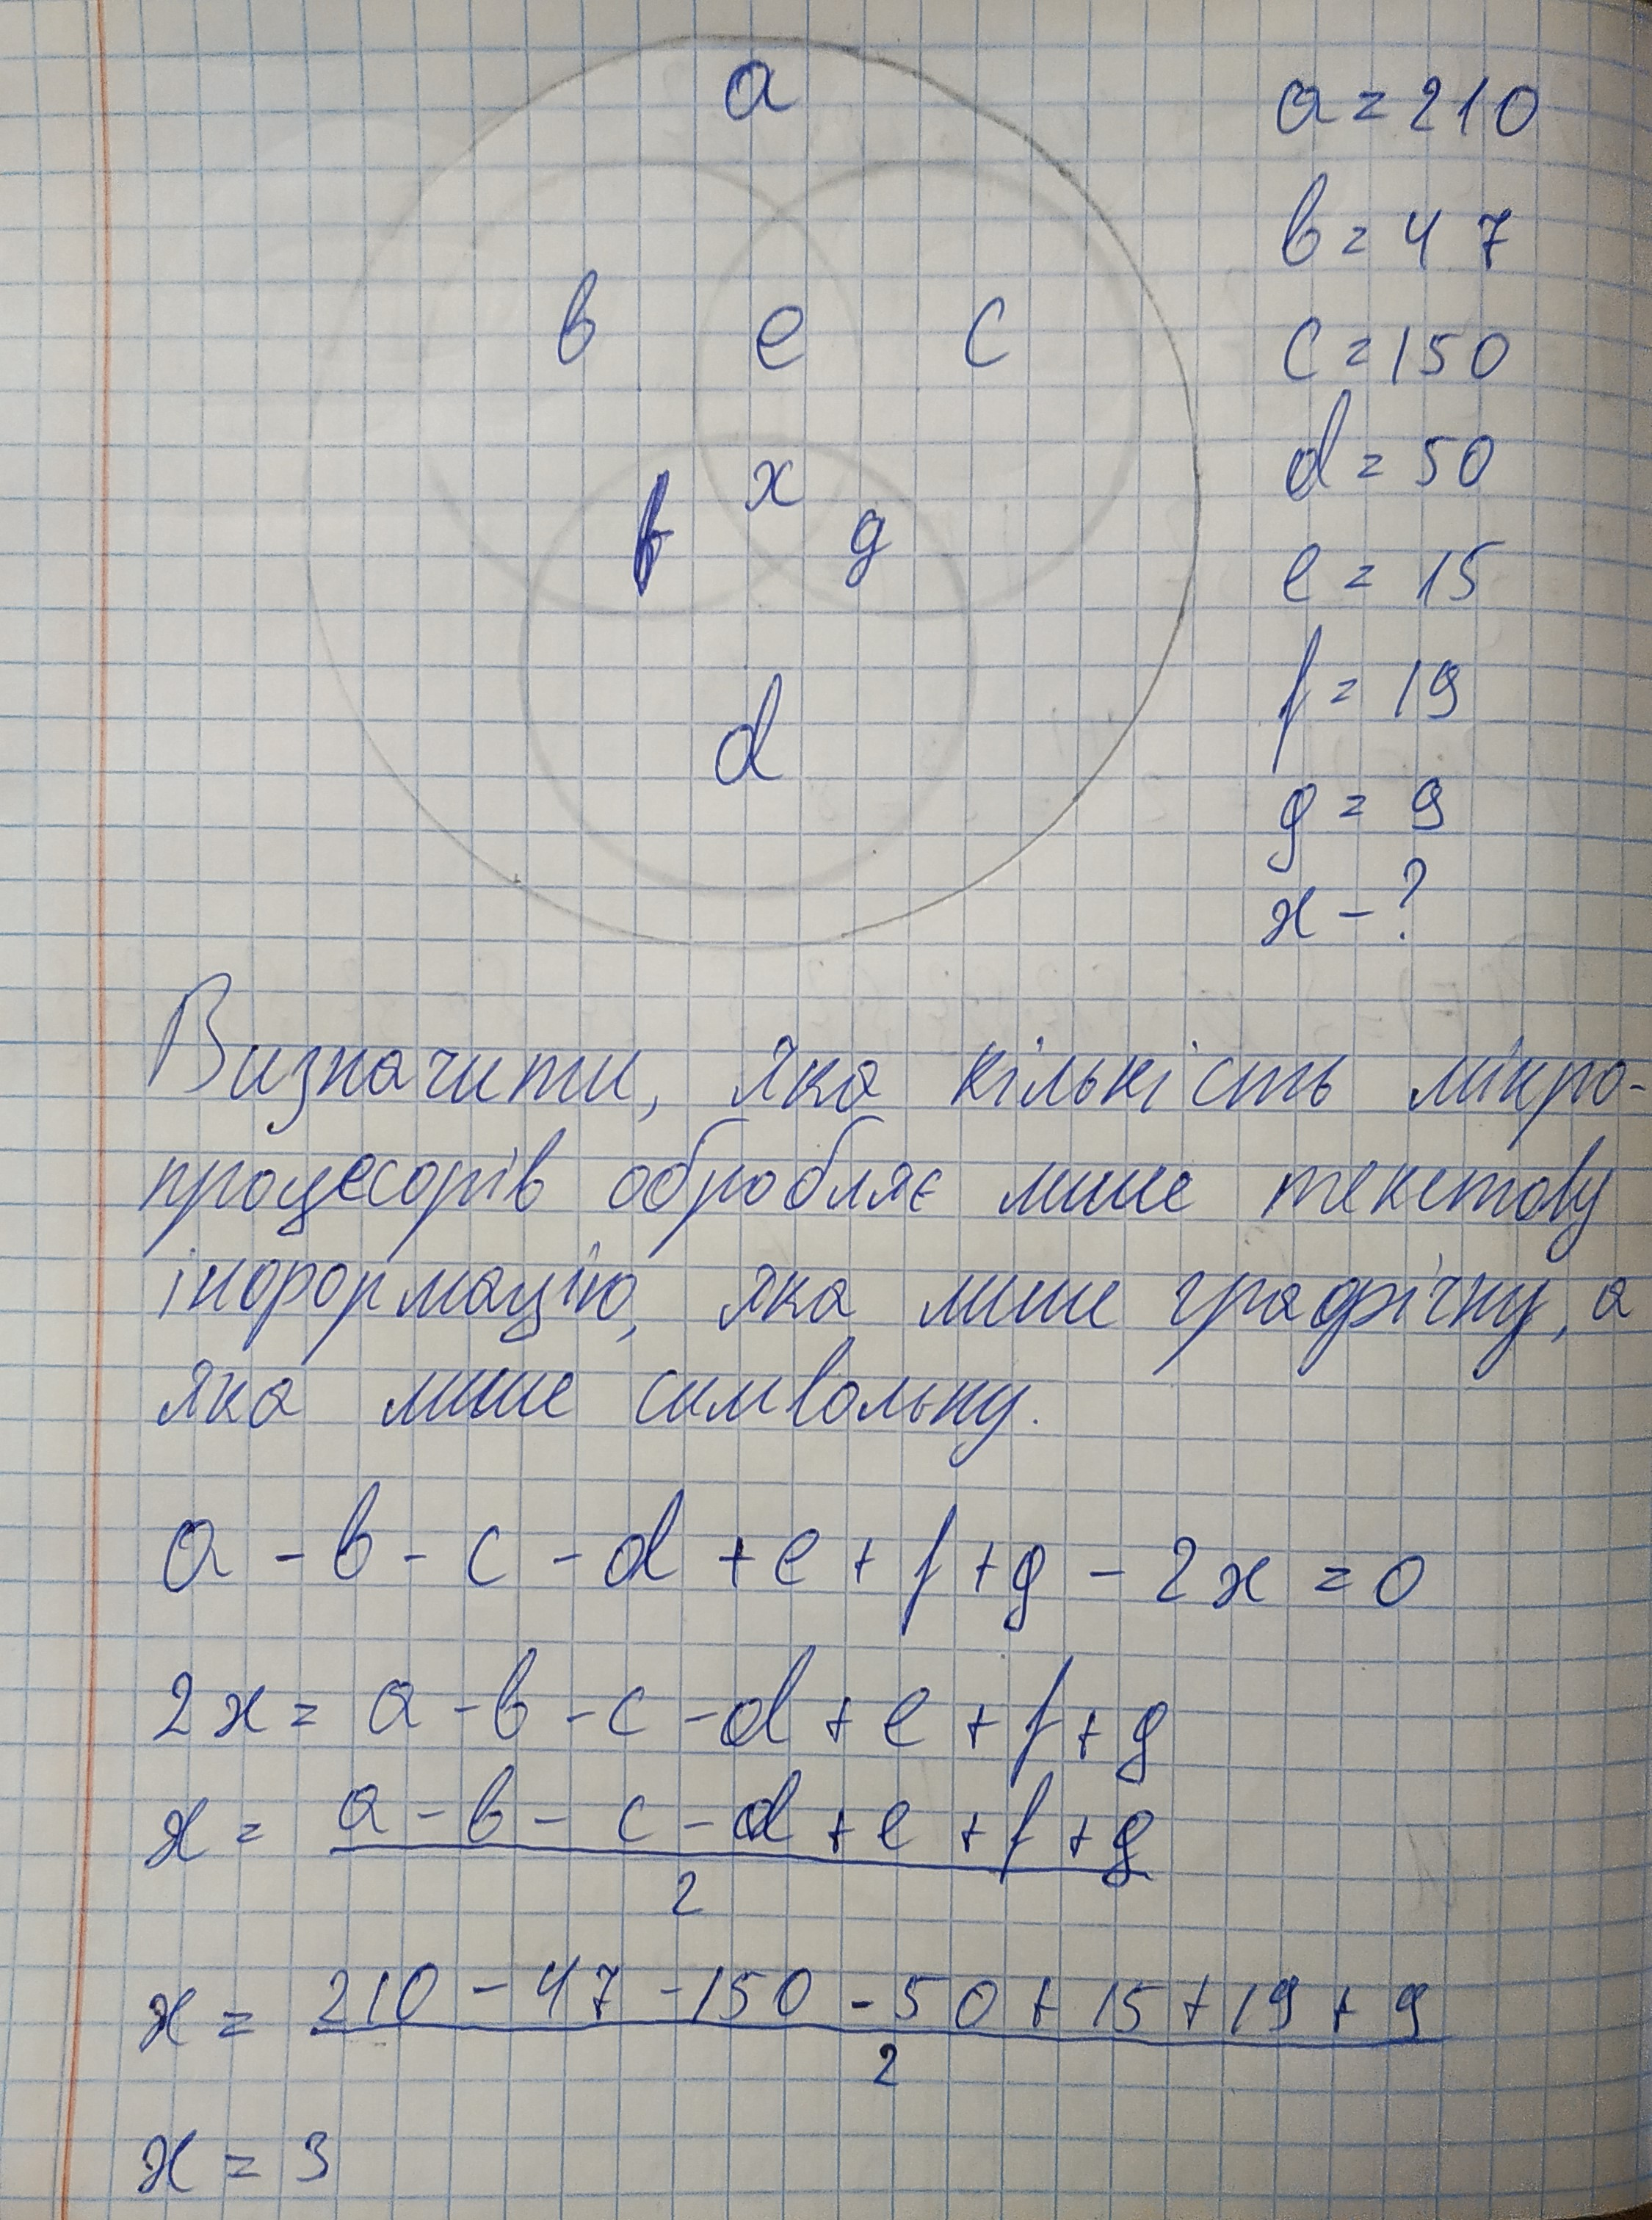 a
a = 210
b = 47
b e c
c = 150
d = 50
x
f g
e = 15
f = 19
d
g = 9
x - ?
Визначити, яка кількість мікро-
процесорів обробляє лише текстову
інформацію, яка лише графічну, а
яка лише символьну.
a - b - c - d + e + f + g - 2x = 0
2x = a - b - c - d + e + f + g
x = a - b - c - d + e + f + g
2
x = 210 - 47 - 150 - 50 + 15 + 19 + 9
2
x = 3